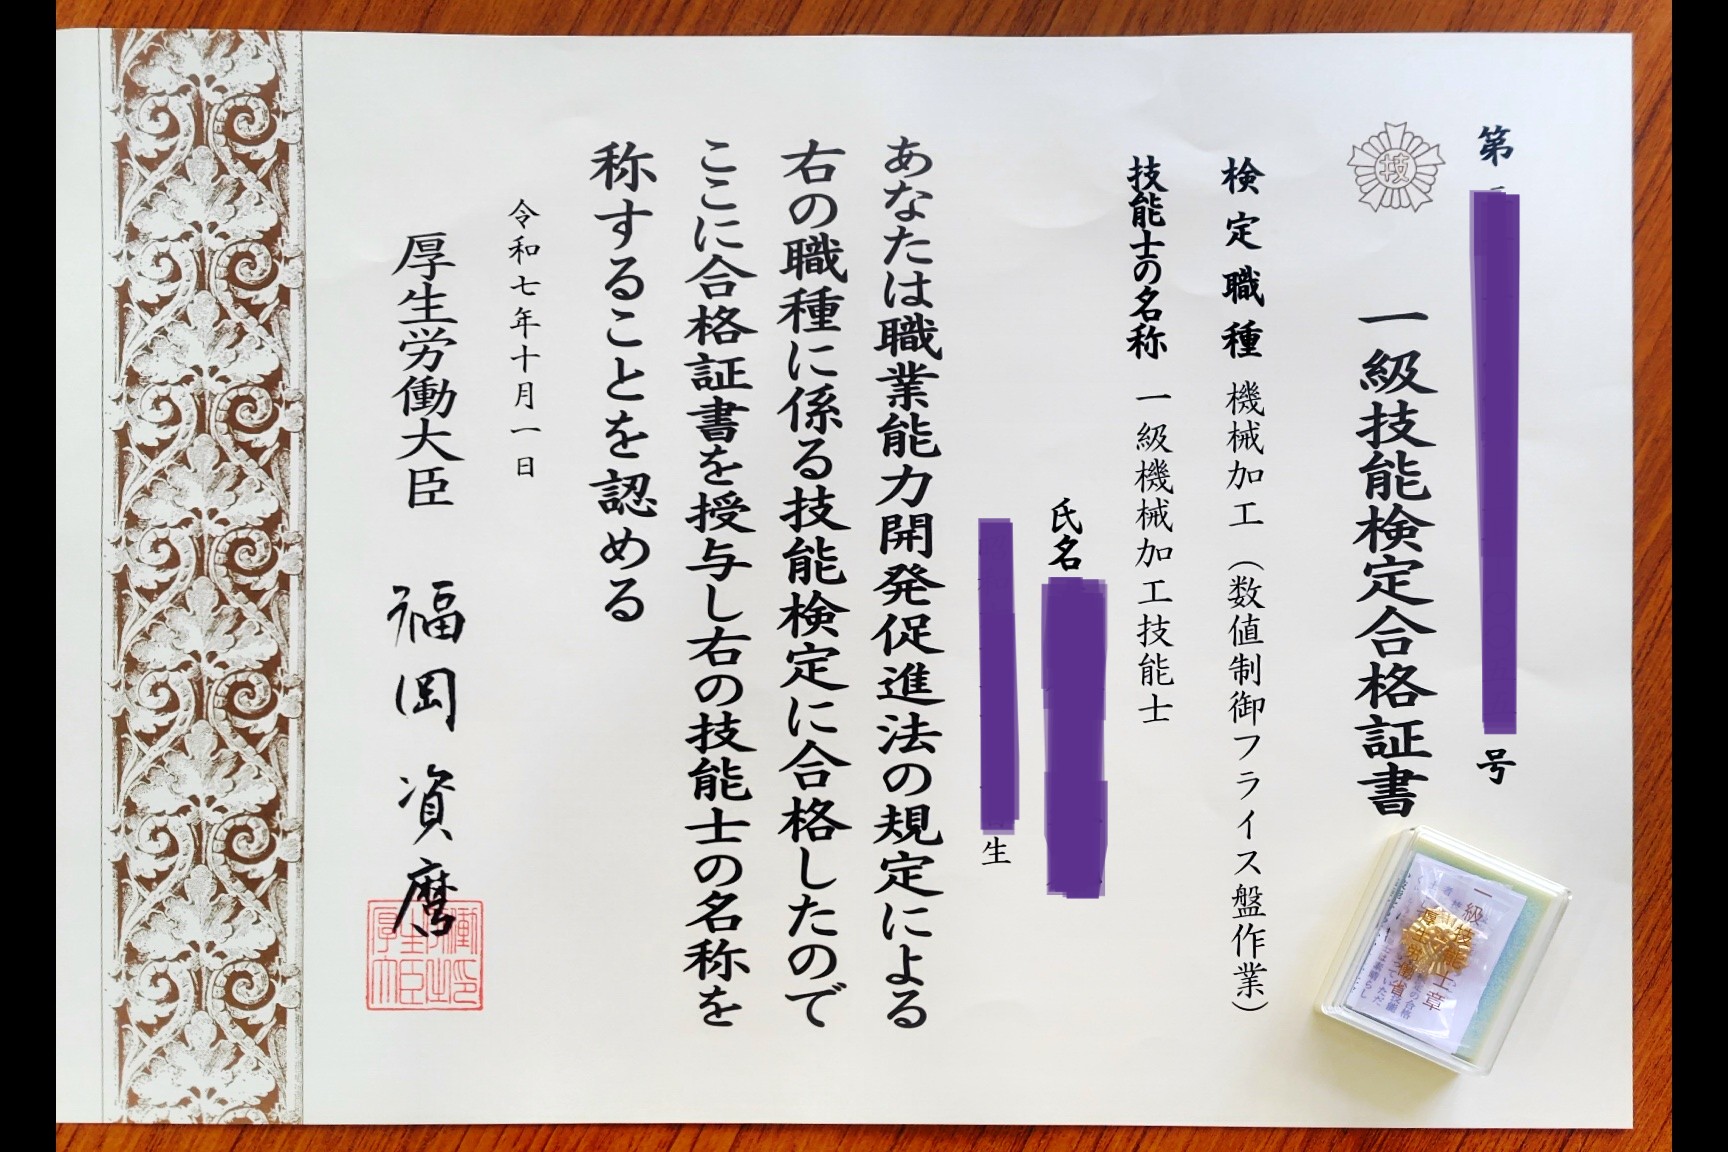 第
号
技
一級技能検定合格証書
検定職種 機械加工（数値制御フライス盤作業）
技能士の名称 一級機械加工技能士
氏名
生
あなたは職業能力開発促進法の規定による
右の職種に係る技能検定に合格したので
ここに合格証書を授与し右の技能士の名称を
称することを認める
令和七年十月一日
厚生労働大臣 福岡資麿
一級技能士章
厚生労働省